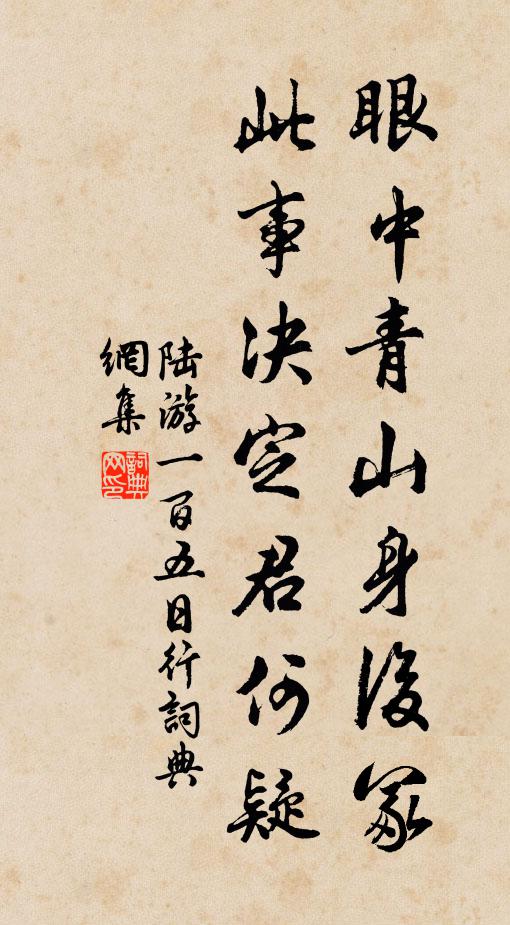 眼中青山身後冢
此事決定君何疑
陸游一百五日行詞典
網集
詞典
网印